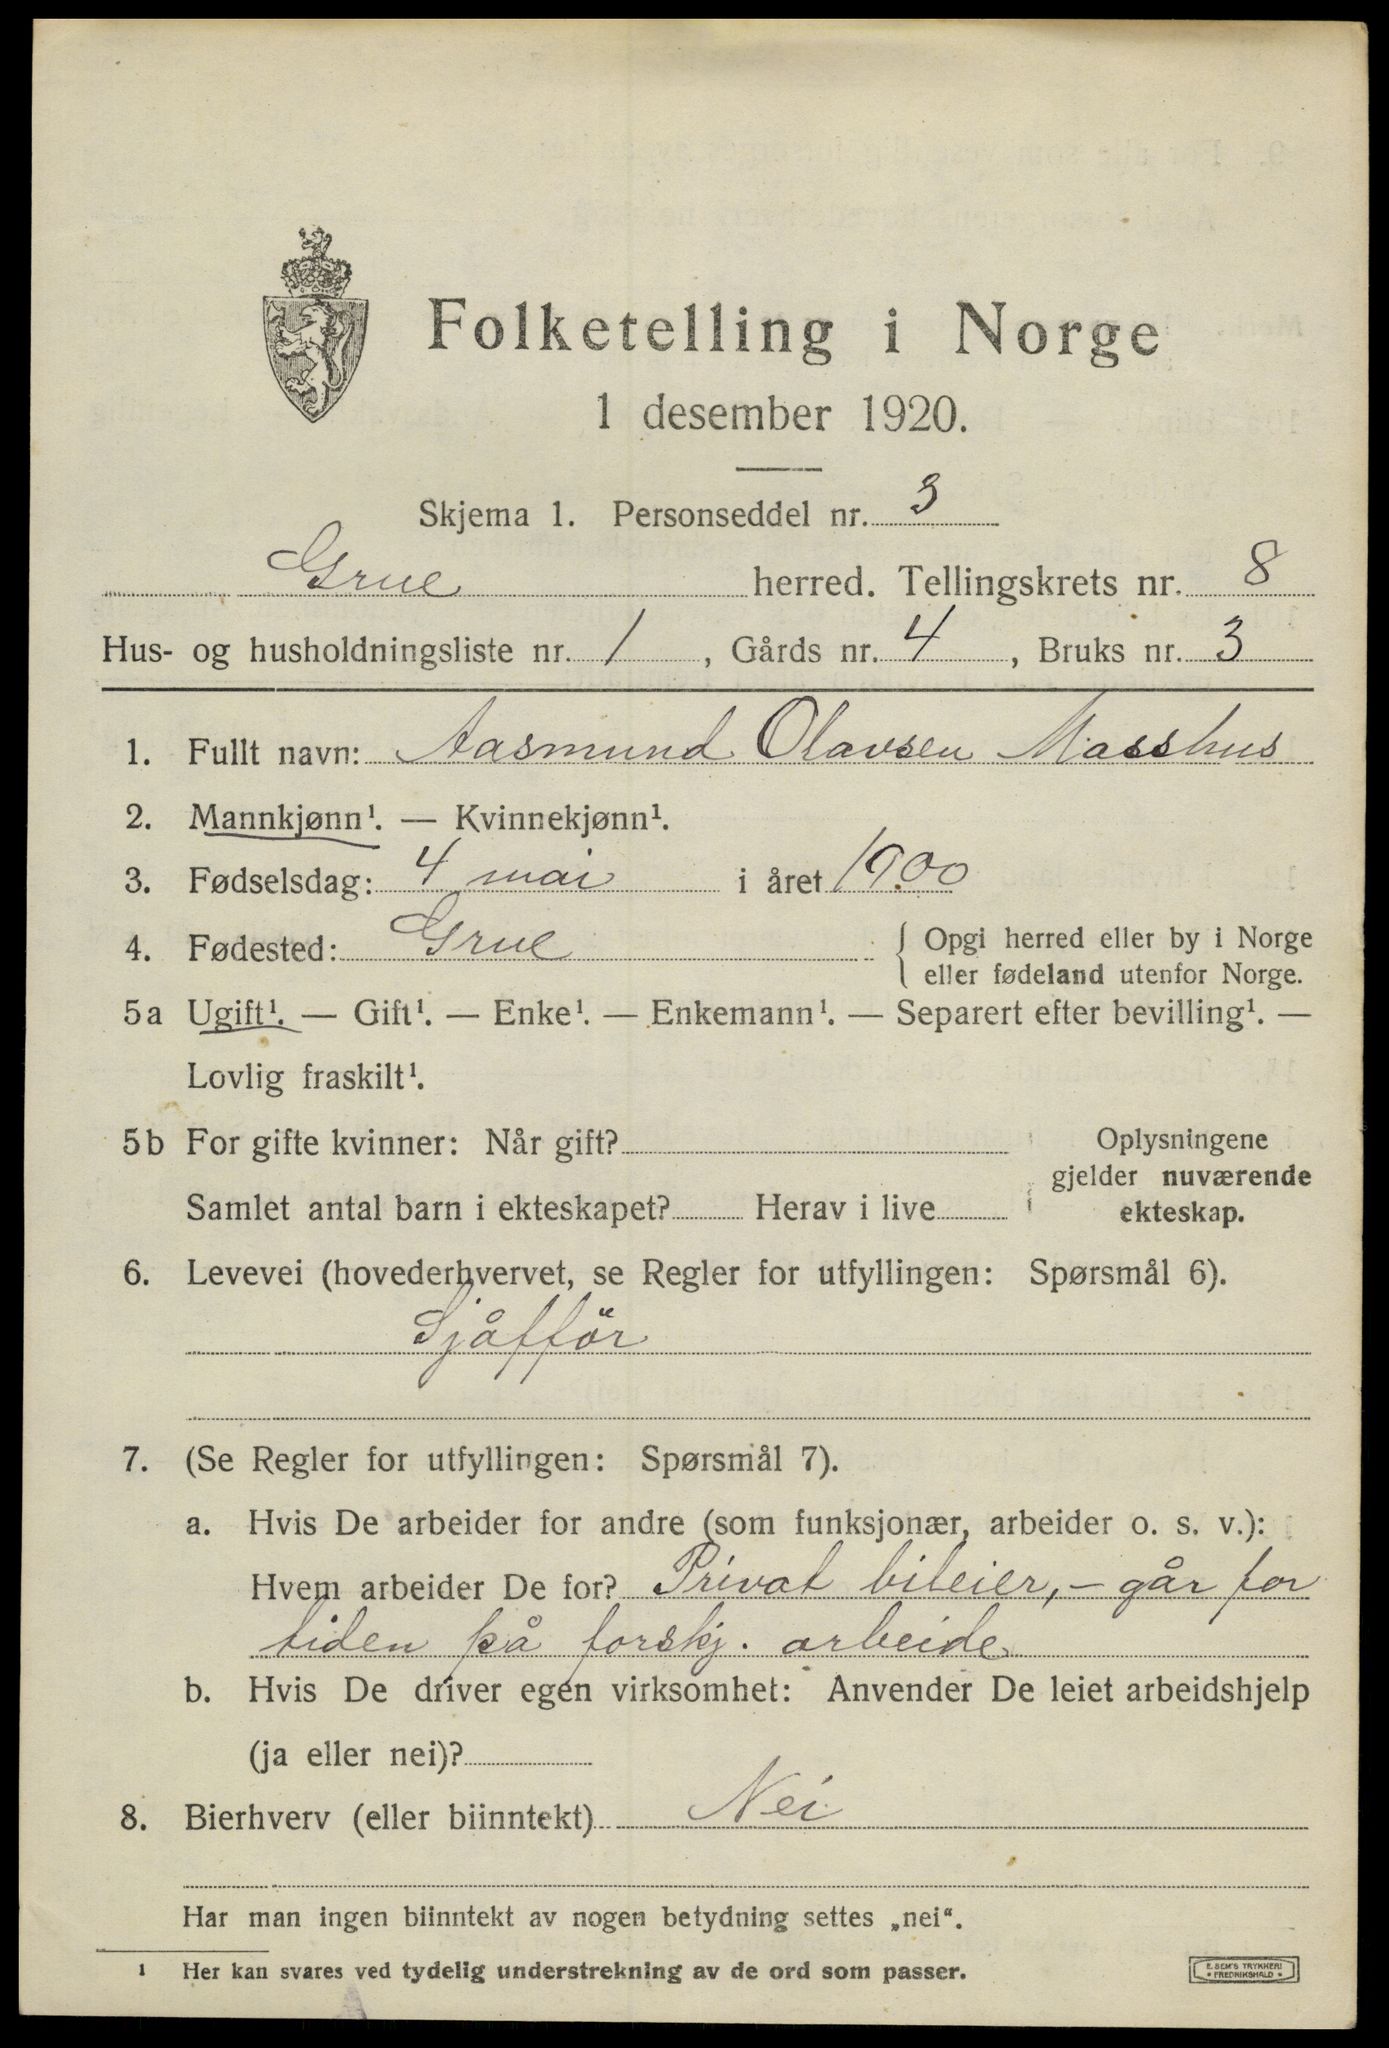 Folketelling i Norge
1 desember 1920.
Skjema 1. Personseddel nr. 3
Grue herred. Tellingskrets nr. 8
Hus- og husholdningsliste nr. 1, Gårds nr. 4, Bruks nr. 3
1. Fullt navn: Aasmund Olavsen Masshus
2. Mannkjønn¹. — Kvinnekjønn¹.
3. Fødselsdag: 4 mai i året 1900
4. Fødested: Grue { Opgi herred eller by i Norge
eller fødeland utenfor Norge.
5a Ugift¹. — Gift¹. — Enke¹. — Enkemann¹. — Separert efter bevilling¹. —
Lovlig fraskilt¹.
5b For gifte kvinner: Når gift? Oplysningene
gjelder nuværende
Samlet antal barn i ekteskapet? Herav i live ekteskap.
6. Levevei (hovederhvervet, se Regler for utfyllingen: Spørsmål 6).
Sjåfför
7. (Se Regler for utfyllingen: Spørsmål 7).
a. Hvis De arbeider for andre (som funksjonær, arbeider o. s. v.):
Hvem arbeider De for? Privat bileier, - går for
tiden på forskj. arbeide
b. Hvis De driver egen virksomhet: Anvender De leiet arbeidshjelp
(ja eller nei)?
8. Bierhverv (eller biinntekt) Nei
Har man ingen biinntekt av nogen betydning settes „nei“.
¹ Her kan svares ved tydelig understrekning av de ord som passer.
E. SEM'S TRYKKERI
• FREDRIKSHALD •